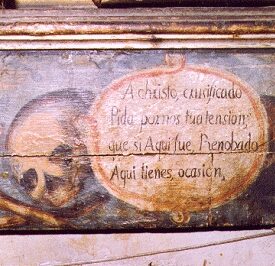 A christo, crusificado
Pida por nos tu atension,
que si Aqui fue, Renobado
Aqui tienes, ocasion,